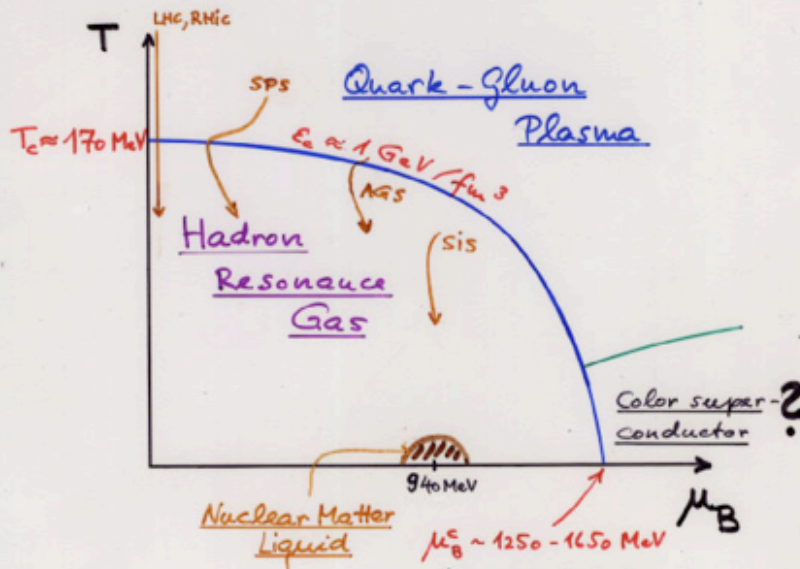 LHC, RHIC
T
SPS
Quark-Gluon
Plasma
Tc ≈ 170 MeV
εc ≈ 1 GeV/fm³
AGS
Hadron
Resonance
Gas
SIS
Color super-
conductor
?
940 MeV
μB
Nuclear Matter
Liquid
μBᶜ ~ 1250-1650 MeV